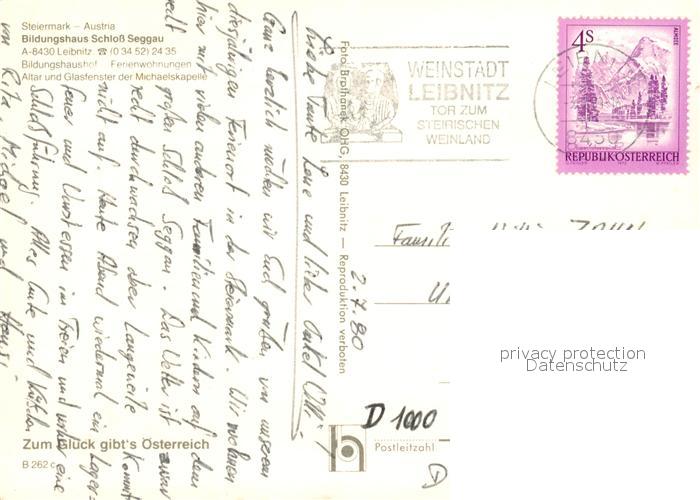 Steiermark – Austria
Bildungshaus Schloß Seggau
A-8430 Leibnitz ☎ (0 34 52) 24 35
Bildungshaushof Ferienwohnungen
Altar und Glasfenster der Michaelskapelle
Zum Glück gibt's Österreich
B 262 c
Foto Brothanek OHG, 8430 Leibnitz — Reproduktion verboten
WEINSTADT
LEIBNITZ
TOR ZUM
STEIRISCHEN
WEINLAND
4 S
ALMSEE
REPUBLIK ÖSTERREICH
8430
Liebe Tante Lene und lieber Onkel
Ganz herzlich wollen wir Euch grüßen von unserem
diesjährigen Ferienort in der Steiermark. Wir wohnen
hier mit vielen anderen Familien und Kindern auf dem
großen Schloß Seggau. Das Wetter ist zwar
recht durchwachsen aber Langeweile kommt
nicht auf. Heute Abend wiedermal ein Lager-
feuer und Umtessen im Freien und vorher eine
Schloßführung. Alles Gute und
von Rita, Michael und
2.7.80
D 1000
Postleitzahl
privacy protection
Datenschutz